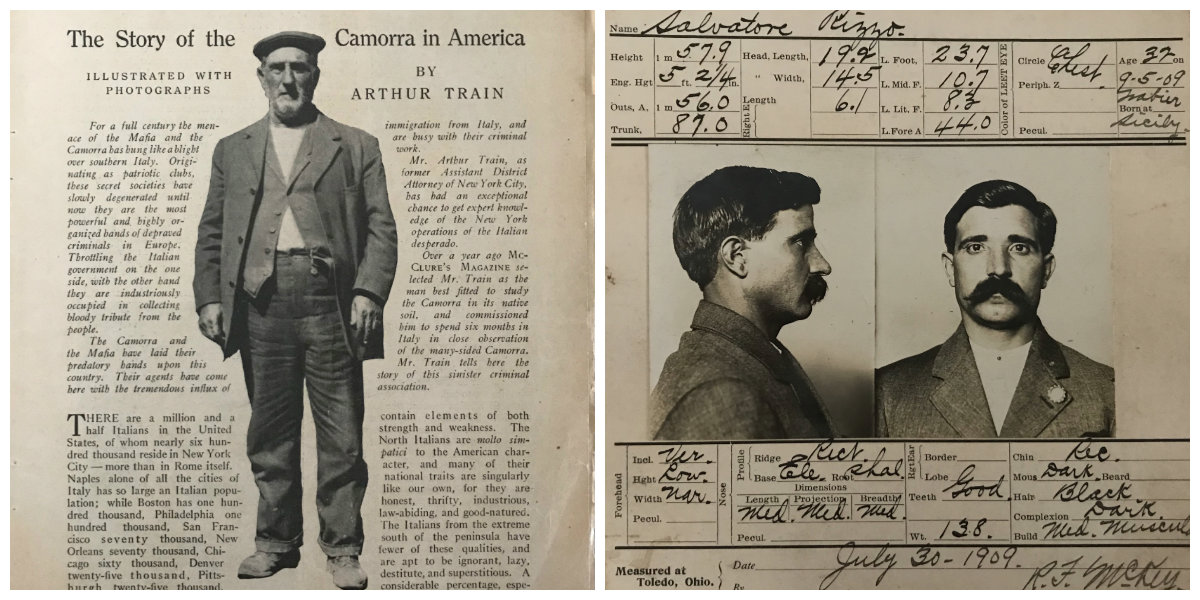 The Story of the Camorra in America
ILLUSTRATED WITH
PHOTOGRAPHS
BY
ARTHUR TRAIN
For a full century the men-
ace of the Mafia and the
Camorra has hung like a blight
over southern Italy. Origi-
nating as patriotic clubs,
these secret societies have
slowly degenerated until
now they are the most
powerful and highly or-
ganized bands of depraved
criminals in Europe.
Throttling the Italian
government on the one
side, with the other hand
they are industriously
occupied in collecting
bloody tribute from the
people.
The Camorra and
the Mafia have laid their
predatory hands upon this
country. Their agents have come
here with the tremendous influx of
immigration from Italy, and
are busy with their criminal
work.
Mr. Arthur Train, as
former Assistant District
Attorney of New York City,
has had an exceptional
chance to get expert knowl-
edge of the New York
operations of the Italian
desperado.
Over a year ago MC-
CLURE'S MAGAZINE se-
lected Mr. Train as the
man best fitted to study
the Camorra in its native
soil, and commissioned
him to spend six months in
Italy in close observation
of the many-sided Camorra.
Mr. Train tells here the
story of this sinister criminal
association.
THERE are a million and a
half Italians in the United
States, of whom nearly six hun-
dred thousand reside in New York
City — more than in Rome itself.
Naples alone of all the cities of
Italy has so large an Italian popu-
lation; while Boston has one hun-
dred thousand, Philadelphia one
hundred thousand, San Fran-
cisco seventy thousand, New
Orleans seventy thousand, Chi-
cago sixty thousand, Denver
twenty-five thousand, Pitts-
burgh twenty-five thousand,
contain elements of both
strength and weakness. The
North Italians are molto sim-
patici to the American char-
acter, and many of their
national traits are singularly
like our own, for they are
honest, thrifty, industrious,
law-abiding, and good-natured.
The Italians from the extreme
south of the peninsula have
fewer of these qualities, and
are apt to be ignorant, lazy,
destitute, and superstitious. A
considerable percentage, espe-
Name Salvatore Rizzo.
Height 1 m 57.9 Head, Length, 19.2 L. Foot, 23.7 Circle Age 32 on
Eng. Hgt 5 ft. 2 1/4 in. " Width, 14.5 L. Mid F. 10.7 Periph. Z Chest. 9-5-09
Outs, A, 1 m 56.0 Length 6.1 L. Lit. F. 8.3 Born at
Trunk, 87.0 Right E L. Fore A 44.0 Color of LEFT EYE Pecul. Sicily.
Forehead Incl. Ver. Profile Ridge Rect. Rgt Ear Border Chin Rec.
Hght Low. Base Ele. Root Shal. Lobe Mous Dark. Beard
Width Nar. Nose Dimensions Teeth Good. Hair Black.
Length Projection Breadth Complexion Dark.
Pecul. Med. Med. Med. Build Med. Muscul
Pecul. Wt. 138.
Measured at
Toledo, Ohio.
Date July 30-1909.
By R. F. McKey